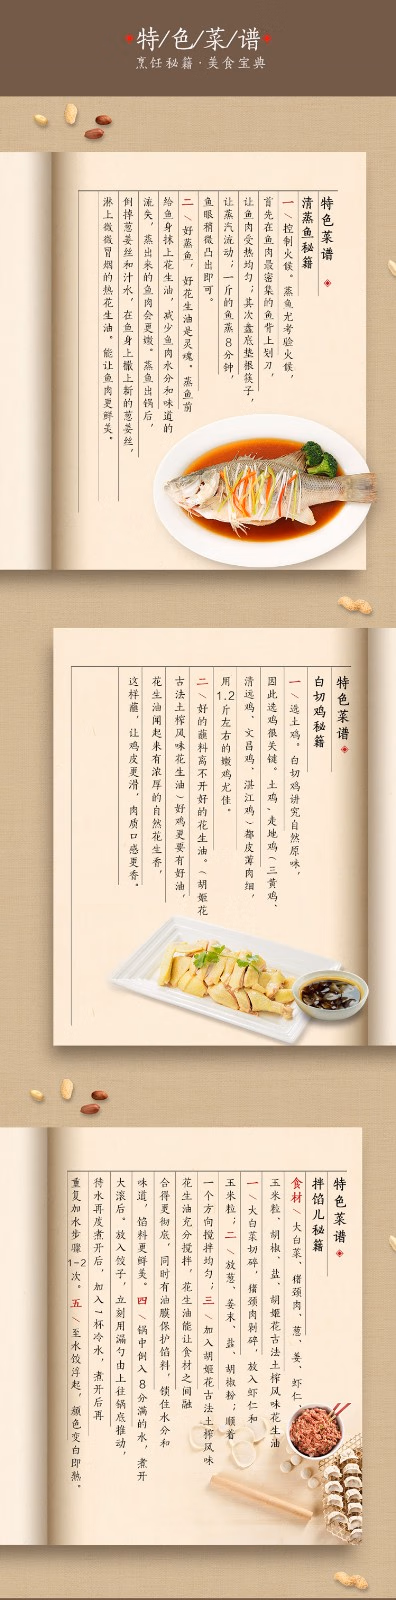 特/色/菜/谱
烹饪秘籍·美食宝典
特色菜谱
清蒸鱼秘籍
一、控制火候。蒸鱼尤考验火候，
首先在鱼肉最密集的鱼背上划刀，
让鱼肉受热均匀；其次盘底垫根筷子，
让蒸汽流动；一斤的鱼蒸8分钟，
鱼眼稍微凸出即可。
二、好蒸鱼，好花生油是灵魂。蒸鱼前
给鱼身抹上花生油，减少鱼肉水分和味道的
流失，蒸出来的鱼肉会更嫩。蒸鱼出锅后，
倒掉葱姜丝和汁水，在鱼身上撒上新的葱姜丝，
淋上微微冒烟的热花生油。能让鱼肉更鲜美。
特色菜谱
白切鸡秘籍
一、选土鸡。白切鸡讲究自然原味，
因此选鸡很关键。土鸡、走地鸡（三黄鸡、
清远鸡、文昌鸡、湛江鸡）都皮薄肉细，
用1.2斤左右的嫩鸡尤佳。
二、好的蘸料离不开好的花生油。（胡姬花
古法土榨风味花生油）好鸡更要有好油，
花生油闻起来有浓厚的自然花生香，
这样蘸，让鸡皮更滑，肉质口感更香。
特色菜谱
拌馅儿秘籍
食材、大白菜、猪颈肉、葱、姜、虾仁、
玉米粒、胡椒、盐、胡姬花古法土榨风味花生油
一、大白菜切碎，猪颈肉剁碎，放入虾仁和
玉米粒；二、放葱、姜末、盐、胡椒粉；顺着
一个方向搅拌均匀；三、加入胡姬花古法土榨风味
花生油充分搅拌，花生油能让食材之间融
合得更彻底，同时有油膜保护馅料，锁住水分和
味道，馅料更鲜美。四、锅中倒入8分满的水，煮开
大滚后。放入饺子，立刻用漏勺由上往锅底推动，
待水再度煮开后，加入1杯冷水，煮开后再
重复加水步骤1-2次。五、至水饺浮起，颜色变白即熟。